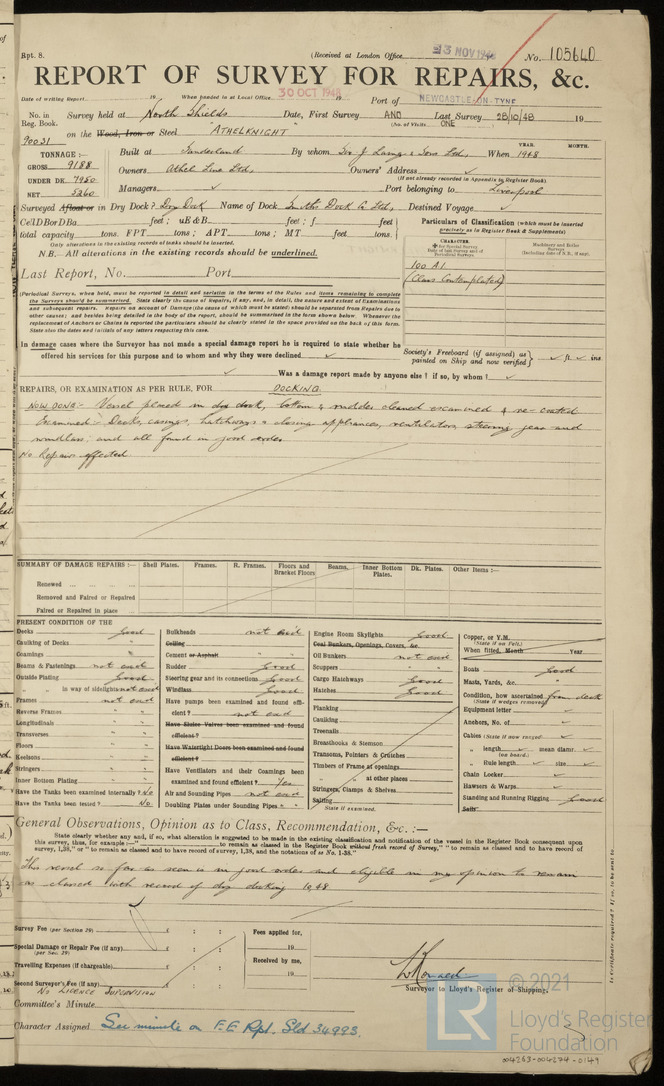 Rpt. 8.
(Received at London Office 13 NOV 1948
No. 105640
REPORT OF SURVEY FOR REPAIRS, &c.
Date of writing Report 19 When handed in at Local Office 30 OCT 1948 19 Port of NEWCASTLE-ON-TYNE
No. in Reg. Book. Survey held at North Shields Date, First Survey AND Last Survey 28/10/48 19
(No. of Visits ONE
90031 on the Wood, Iron or Steel "ATHELKNIGHT"
TONNAGE:— Built at Sunderland By whom Sir J Laing & Sons Ltd, When 1948
YEAR. MONTH.
GROSS 9188 Owners Athel Line Ltd, Owners' Address ✓
(If not already recorded in Appendix to Register Book)
UNDER DK. 7980
NET 5260 Managers ✓ Port belonging to Liverpool
Surveyed Afloat or in Dry Dock? Dry Dock Name of Dock Smiths Dock Co Ltd, Destined Voyage ✓
CellDBorDBa feet; uE&B feet; f feet
total capacity tons. FPT tons; APT tons; MT feet tons
Only alterations in the existing records of tanks should be inserted.
N.B. All alterations in the existing records should be underlined.
Particulars of Classification (which must be inserted precisely as in Register Book & Supplements)
CHARACTER.
100 A1
(Class Contemplated)
Last Report, No. Port
(Periodical Surveys, when held, must be reported in detail and seriatim in the terms of the Rules and items remaining to complete
the Surveys should be summarised. State clearly the cause of Repairs, if any, and, in detail, the nature and extent of Examinations
and subsequent repairs. Repairs on account of Damage (the cause of which must be stated) should be separated from Repairs due to
other causes; and besides being detailed in the body of the report, should be summarised in the form shown below. Whenever the
replacement of Anchors or Chains is reported the particulars should be clearly stated in the space provided on the back of this form.
State also the dates and initials of any letters respecting this case.
In damage cases where the Surveyor has not made a special damage report he is required to state whether he
offered his services for this purpose and to whom and why they were declined ✓
Society's Freeboard (if assigned) as painted on Ship and now verified ✓ ft. ✓ ins
✓ Was a damage report made by anyone else? if so, by whom? ✓
REPAIRS, OR EXAMINATION AS PER RULE, FOR DOCKING
NOW DONE:- Vessel placed in dry dock, bottom & rudder cleaned examined & re-coated
Examined:- Decks, casings, hatchways & closing appliances, ventilators, steering gear and
windlass; and all found in good order.
No Repairs effected
SUMMARY OF DAMAGE REPAIRS:— Shell Plates. Frames. R. Frames. Floors and Bracket Floors Beams. Inner Bottom Plates. Dk. Plates. Other Items:—
Renewed
Removed and Faired or Repaired
Faired or Repaired in place
PRESENT CONDITION OF THE
Decks Good
Caulking of Decks "
Coamings "
Beams & Fastenings not exd
Outside Plating Good
" " in way of sidelights not exd
Frames not exd
Reverse Frames " "
Longitudinals " "
Transverses " "
Floors " "
Keelsons " "
Stringers " "
Inner Bottom Plating " "
Have the Tanks been examined internally? No
Have the Tanks been tested? No
Bulkheads not exd
Ceiling
Cement or Asphalt " "
Rudder Good
Steering gear and its connections Good
Windlass Good
Have pumps been examined and found efficient? not exd
Have Sluice Valves been examined and found efficient?
Have Watertight Doors been examined and found efficient?
Have Ventilators and their Coamings been examined and found efficient? Yes
Air and Sounding Pipes not exd
Doubling Plates under Sounding Pipes " "
Engine Room Skylights Good
Coal Bunkers, Openings, Covers, &c.
Oil Bunkers not exd
Scuppers
Cargo Hatchways Good
Hatches Good
Planking
Caulking
Treenails
Breasthooks & Stemson
Transoms, Pointers & Crutches
Timbers of Frame at openings
" " at other places
Stringers, Clamps & Shelves
Salting
State if examined.
Copper, or Y.M.
(State if on Felt.)
When fitted, Month Year
Boats Good
Masts, Yards, &c. "
Condition, how ascertained from deck
(State if wedges removed)
Equipment letter ✓
Anchors, No. of ✓
Cables (State if now ranged) ✓
" length ✓ mean diamr. ✓
(on board.)
" Rule length ✓ size ✓
Chain Locker ✓
Hawsers & Warps ✓
Standing and Running Rigging Good
Sails
General Observations, Opinion as to Class, Recommendation, &c. :—
State clearly whether any and, if so, what alteration is suggested to be made in the existing classification and notification of the vessel in the Register Book consequent upon
this survey, thus, for example:—" to remain as classed in the Register Book without fresh record of Survey," " to remain as classed and to have record of
survey, 1,38," or " to remain as classed and to have record of survey, 1,38, and the notations of ss No. 1-38."
This vessel so far as seen is in good order and eligible in my opinion to remain
as classed with record of dry docking 10.48
Survey Fee (per Section 29) £ : :
Special Damage or Repair Fee (if any) £ : :
(per Sec. 29)
Travelling Expenses (if chargeable) £ : :
Second Surveyor's Fee (if any) £ : :
No LICENCE SUPERVISION
Fees applied for,
19
Received by me,
19
Surveyor to Lloyd's Register of Shipping.
Committee's Minute
Character Assigned See minute on F.E Rpt. Sld 34993.
© 2021
LR
Lloyd's Register
Foundation
004263-004274-0149